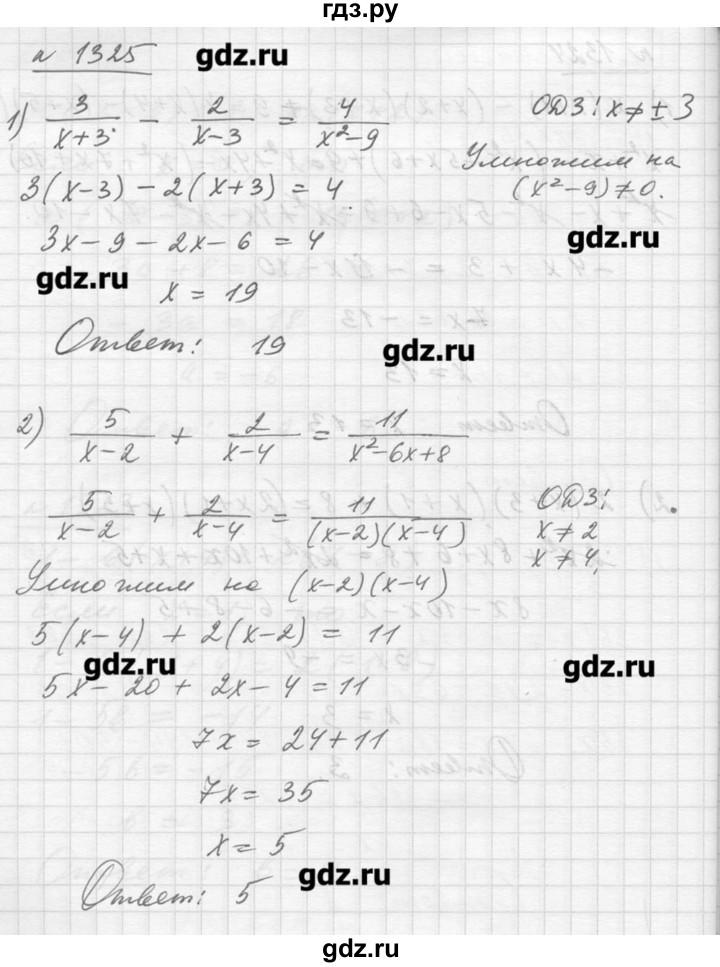 гдз.ру
N 1325
gdz.ru
1) 3/(x+3) - 2/(x-3) = 4/(x²-9)
ОДЗ: x ≠ ±3
Умножим на
(x²-9) ≠ 0.
3(x-3) - 2(x+3) = 4
gdz.ru
3x - 9 - 2x - 6 = 4
gdz.ru
x = 19
Ответ: 19
gdz.ru
2) 5/(x-2) + 2/(x-4) = 11/(x²-6x+8)
5/(x-2) + 2/(x-4) = 11/((x-2)(x-4))
ОДЗ:
x ≠ 2
x ≠ 4,
Умножим на (x-2)(x-4)
5(x-4) + 2(x-2) = 11
gdz.ru
gdz.ru
5x - 20 + 2x - 4 = 11
7x = 24+11
7x = 35
x = 5
gdz.ru
Ответ: 5
gdz.ru